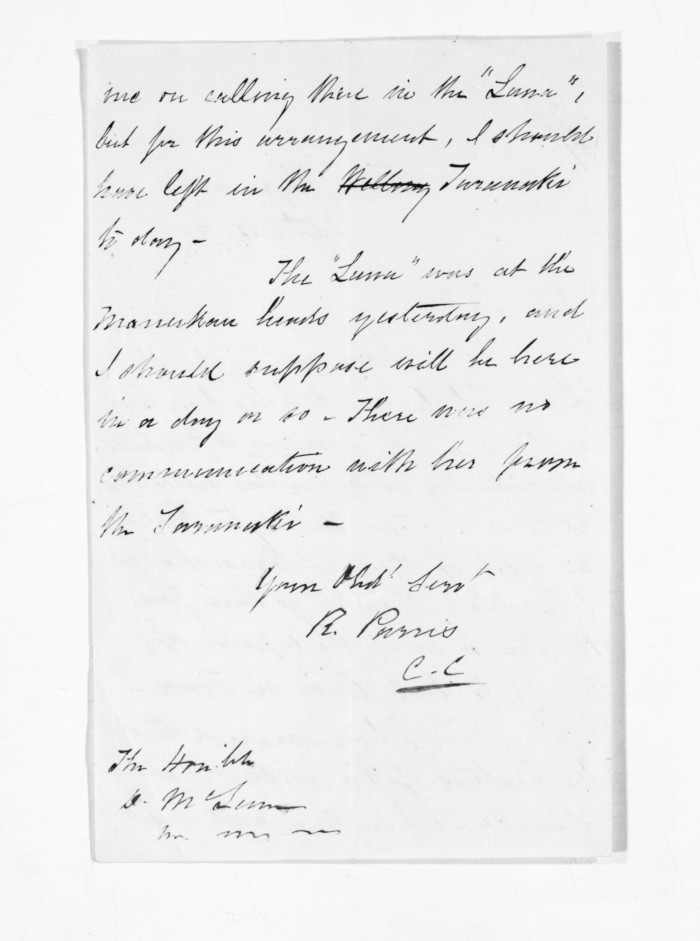 me on calling there in the "Luna",
but for this arrangement, I should
have left in the Taranaki
to day -
The "Luna" was at the
Manukau heads yesterday, and
I should suppose will be here
in a day or so - There was no
communication with her from
the Taranaki -
Your Obdt Servt
R. Parris
C.C
The Honble
D. McLean